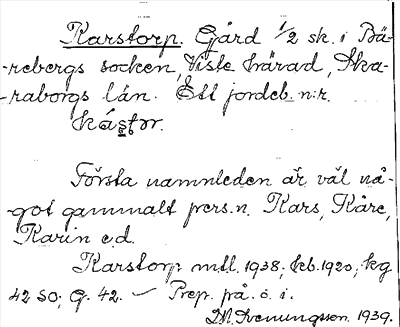 Karstorp. Gård 1/2 sk. i Bä-
rebergs socken, Viste härad, Ska-
raborgs län. Ett jordeb. n:r.
Första namnleden är väl nå-
got gammalt pers.n. Kars, Kåre,
Karin e d.
Karstorp mtl. 1938; kb. 1920; kg
42 SO; G. 42. — Prep. på. ö. i.
Ivenungsson. 1939.